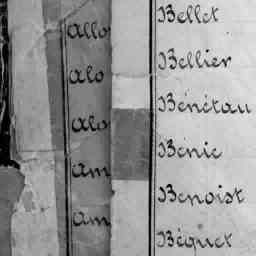 Allo
Alo
Alo
Am
Am
Bellet
Bellier
Bénétau
Bénic
Benoist
Béquet